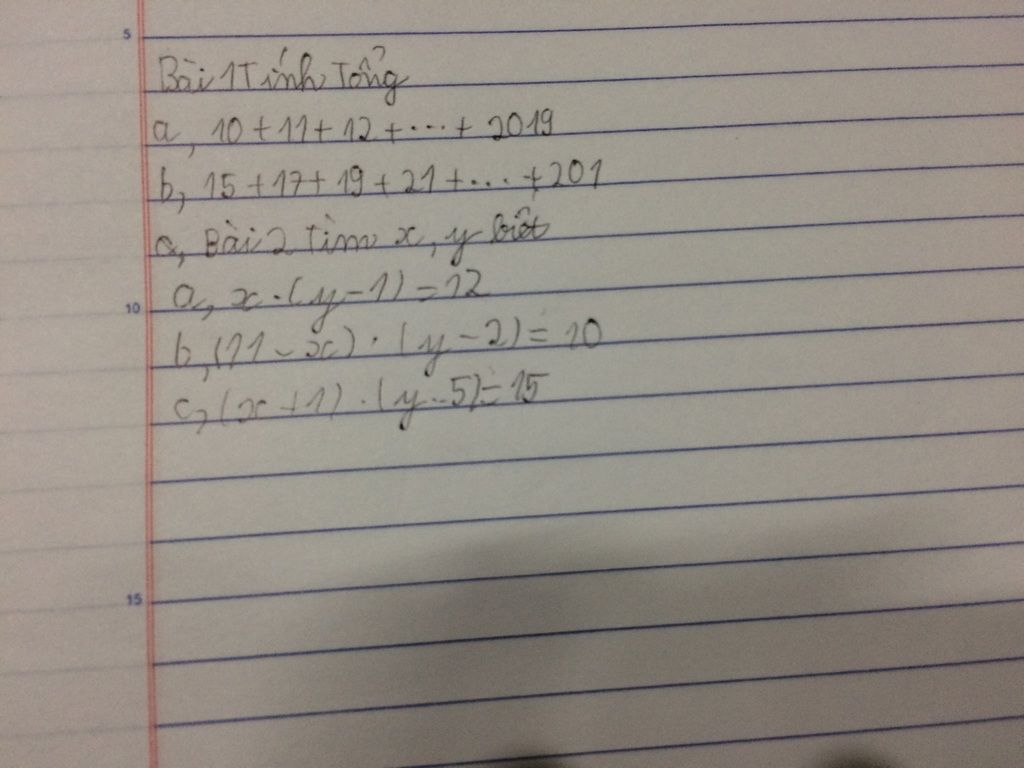 5
Bài 1 Tính Tổng
a, 10 + 11 + 12 + ... + 2019
b, 15 + 17 + 19 + 21 + ... + 201
a, Bài 2 Tìm x, y biết
10
a, x . (y - 1) = 12
b, (11 - x) . (y - 2) = 10
c, (x + 1) . (y - 5) = 15
15